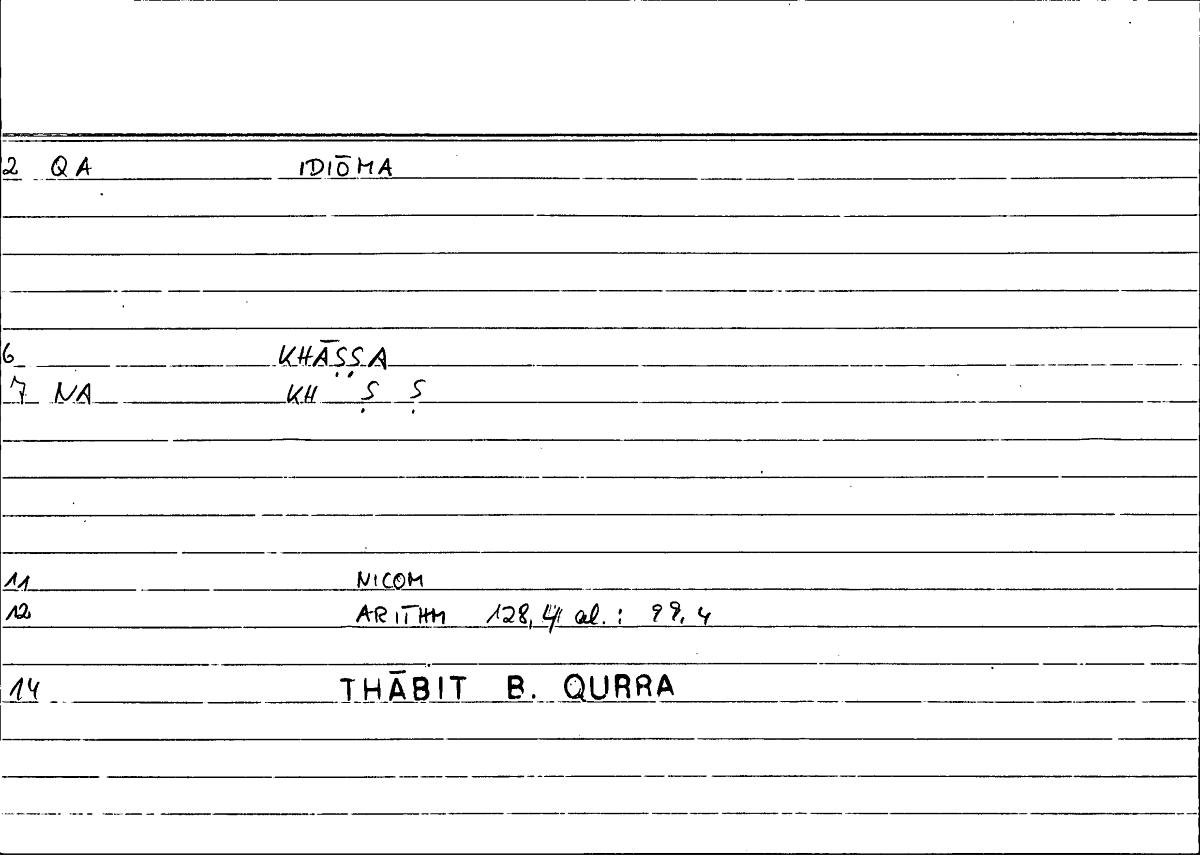 2 QA IDIŌMA
6 KHĀṢṢA
7 NA KH Ṣ Ṣ
11 NICOM
12 ARITHM 128,4 al.: 99,4
14 THĀBIT B. QURRA